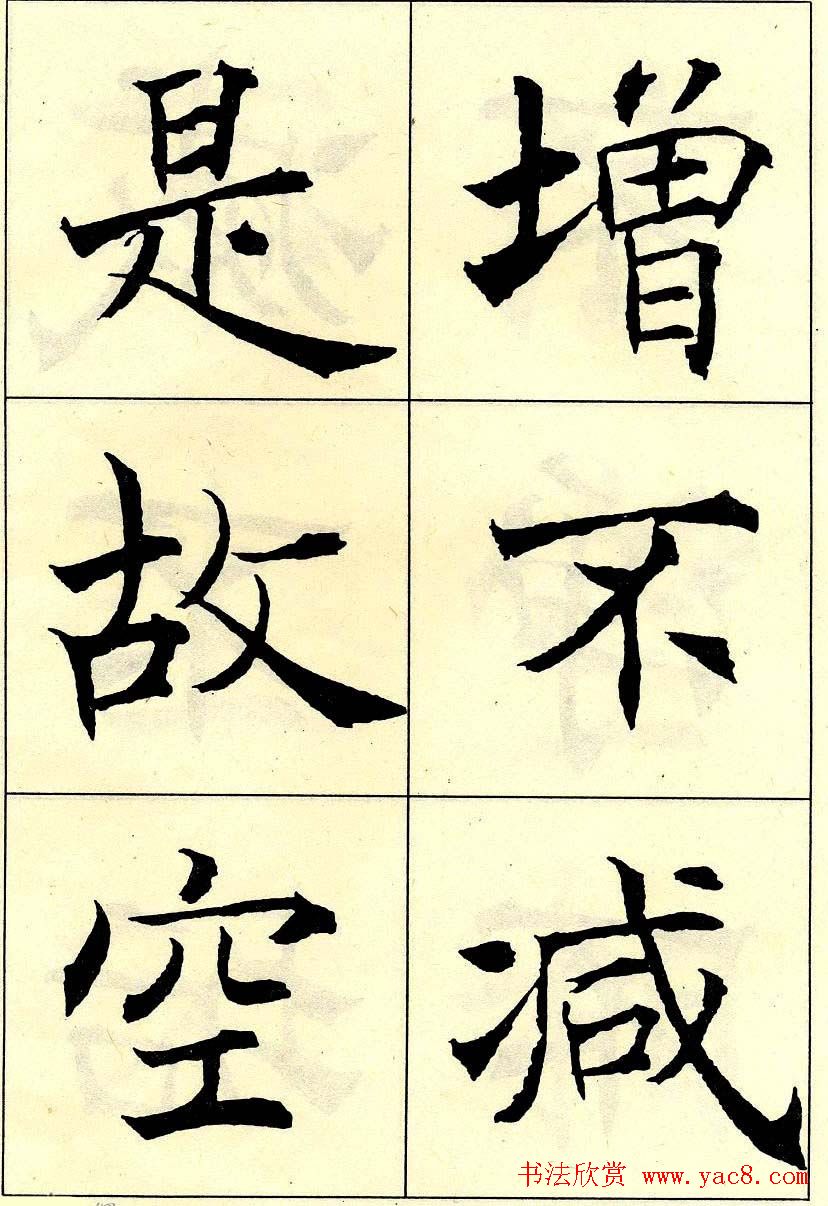 增不减
是故空
书法欣赏 www.yac8.com